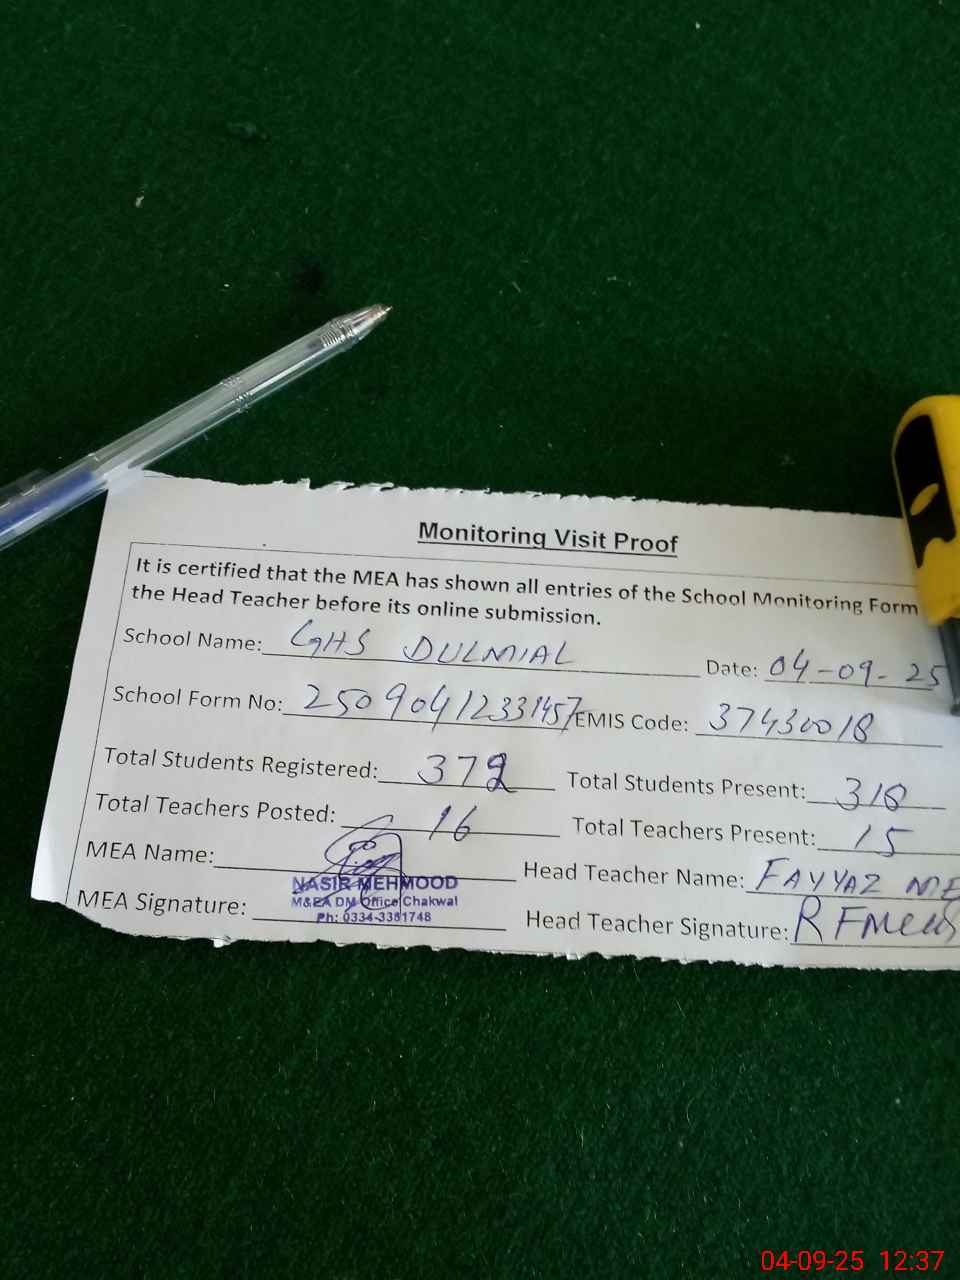 Monitoring Visit Proof
It is certified that the MEA has shown all entries of the School Monitoring Form
the Head Teacher before its online submission.
School Name: GHS DULMIAL Date: 04-09-25
School Form No: 25090412331457 EMIS Code: 37430018
Total Students Registered: 372 Total Students Present: 318
Total Teachers Posted: 16 Total Teachers Present: 15
MEA Name: Head Teacher Name: FAYYAZ ME
NASIR MEHMOOD
M&EA DM Office Chakwal
Ph: 0334-3381748
MEA Signature: Head Teacher Signature:
04-09-25 12:37